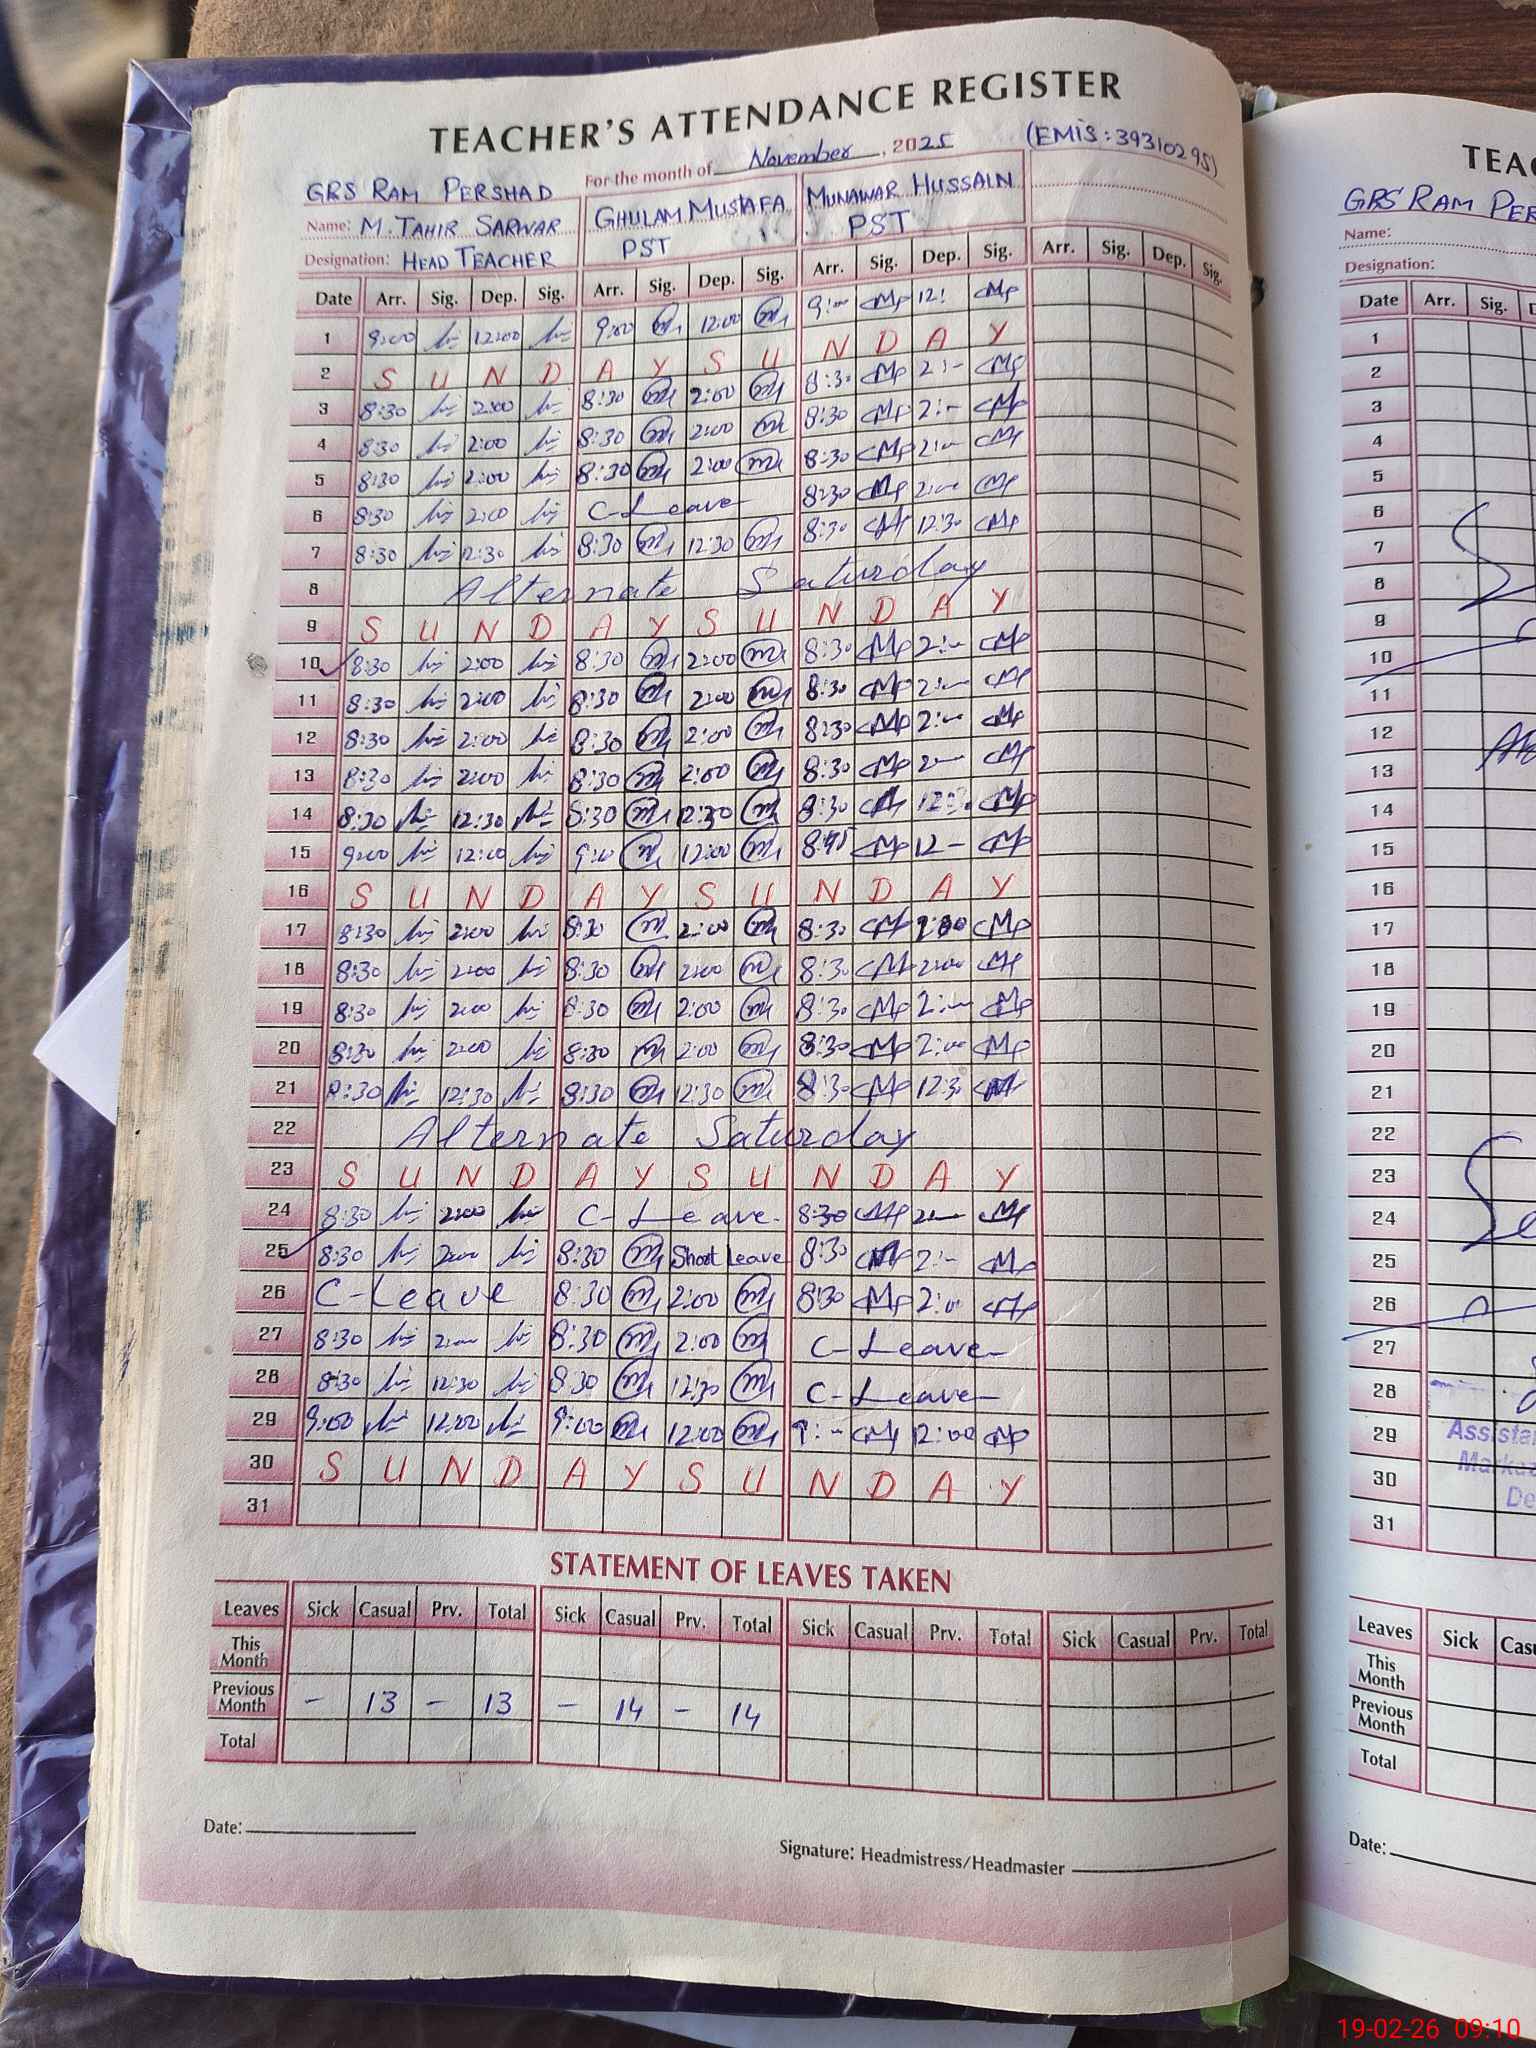 TEACHER'S ATTENDANCE REGISTER
For the month of November, 2025 (EMIS: 39310295)
GRS RAM PERSHAD
Name: M. TAHIR SARWAR GHULAM MUSTAFA MUNAWAR HUSSAIN
Designation: HEAD TEACHER PST PST
Date Arr. Sig. Dep. Sig. Arr. Sig. Dep. Sig. Arr. Sig. Dep. Sig. Arr. Sig. Dep. Sig.
1 9:00 12:00 9:00 12:00 9:— 12:
2 S U N D A Y S U N D A Y
3 8:30 2:00 8:30 2:00 8:30 2:—
4 8:30 2:00 8:30 2:00 8:30 2:—
5 8:30 2:00 8:30 2:00 8:30 2:—
6 8:30 2:00 C-Leave 8:30 2:—
7 8:30 12:30 8:30 12:30 8:30 12:30
8 Alternate Saturday
9 S U N D A Y S U N D A Y
10 8:30 2:00 8:30 2:00 8:30 2:—
11 8:30 2:00 8:30 2:00 8:30 2:—
12 8:30 2:00 8:30 2:00 8:30 2:—
13 8:30 2:00 8:30 2:00 8:30 2—
14 8:30 12:30 8:30 12:30 8:30 12:3
15 9:00 12:00 9:00 12:00 8:45 12—
16 S U N D A Y S U N D A Y
17 8:30 2:00 8:30 2:00 8:30 2:00
18 8:30 2:00 8:30 2:00 8:30 2:00
19 8:30 2:00 8:30 2:00 8:30 2:—
20 8:30 2:00 8:30 2:00 8:30 2:00
21 8:30 12:30 8:30 12:30 8:30 12:3
22 Alternate Saturday
23 S U N D A Y S U N D A Y
24 8:30 2:00 C-Leave 8:30 2—
25 8:30 2:00 8:30 Short Leave 8:30 2:—
26 C-Leave 8:30 2:00 8:30 2:00
27 8:30 2:— 8:30 2:00 C-Leave
28 8:30 12:30 8:30 12:30 C-Leave
29 9:00 12:00 9:00 12:00 9:— 12:00
30 S U N D A Y S U N D A Y
31
STATEMENT OF LEAVES TAKEN
Leaves Sick Casual Prv. Total Sick Casual Prv. Total Sick Casual Prv. Total Sick Casual Prv. Total
This Month
Previous Month - 13 - 13 - 14 - 14
Total
Date:
Signature: Headmistress/Headmaster
GRS RAM
Name:
Designation:
Date Arr. Sig.
1
2
3
4
5
6
7
8
9
10
11
12
13
14
15
16
17
18
19
20
21
22
23
24
25
26
27
28
29
30
31
Leaves Sick
This Month
Previous Month
Total
Date:
19-02-26 09:10